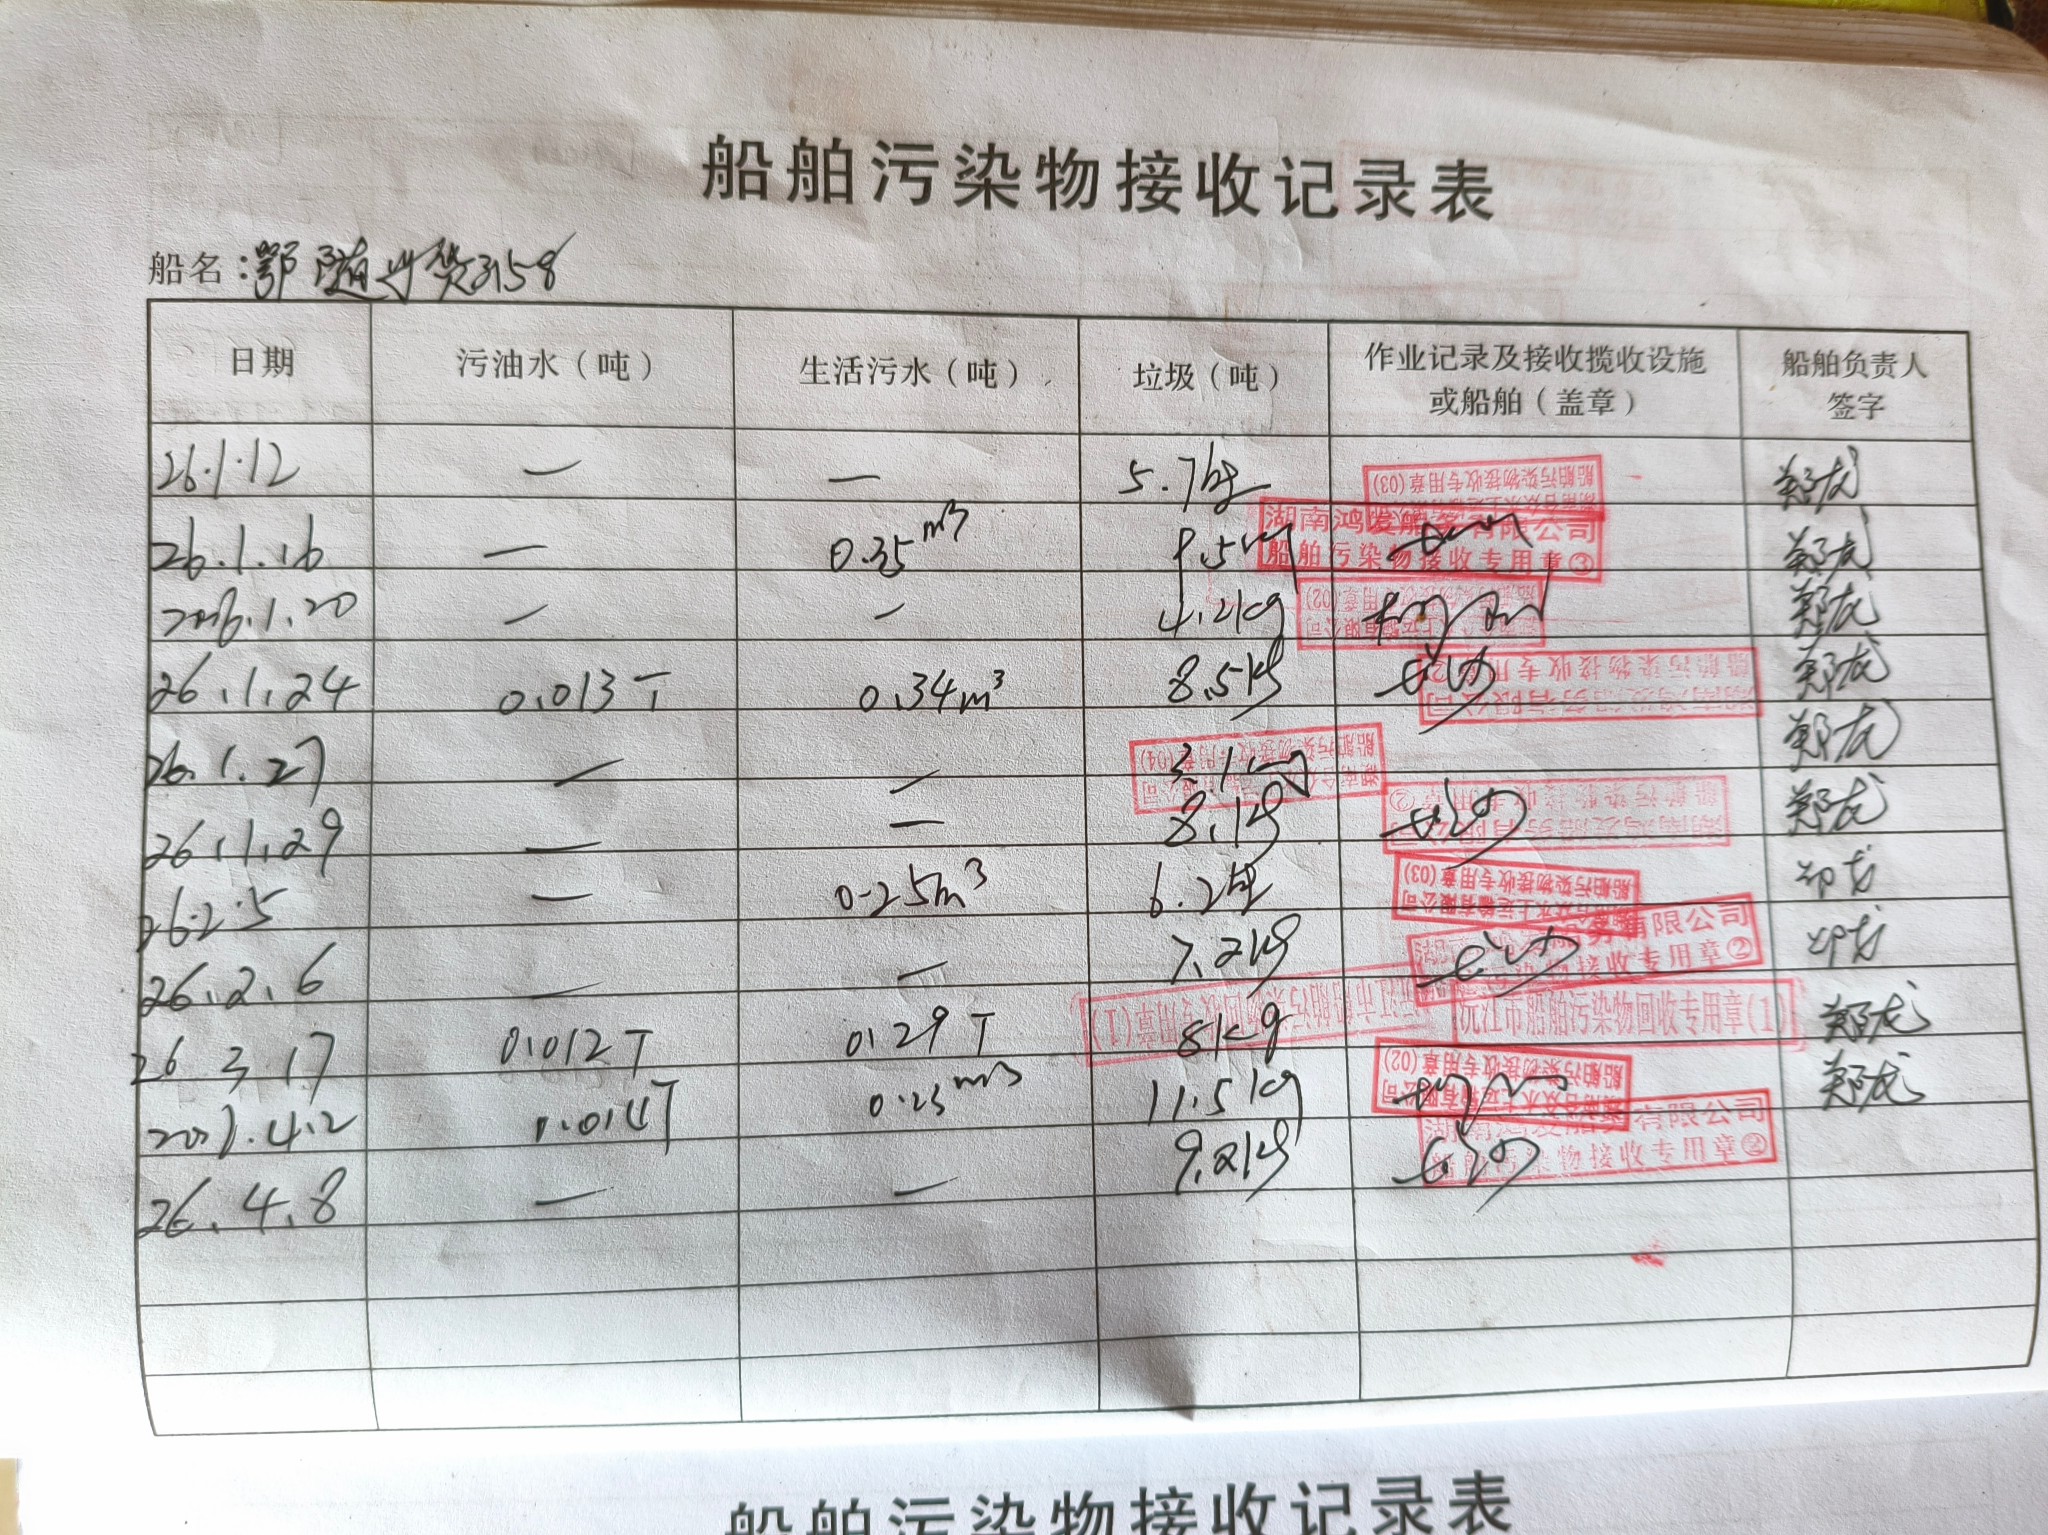 船舶污染物接收记录表
船名：鄂随州货3158
日期 污油水（吨） 生活污水（吨） 垃圾（吨） 作业记录及接收揽收设施或船舶（盖章） 船舶负责人签字
26.1.12 — — 5.7kg 船舶污染物接收专用章(03) 郑龙
26.1.16 — 0.35m³ 9.5kg 湖南鸿发船务有限公司 船舶污染物接收专用章③ 郑龙
2026.1.20 — — 4.2kg 郑龙
26.1.24 0.013T 0.34m³ 8.5kg 船舶污染物接收专用章② 郑龙
26.1.27 — — 3.1kg 船舶污染物接收专用章(04) 郑龙
26.1.29 — — 8.1kg 湖南鸿发船务有限公司 船舶污染物接收专用章② 郑龙
26.2.5 — 0.25m³ 6.2kg 船舶污染物接收专用章(03)
26.2.6 — — 7.2kg 船务有限公司 污染物接收专用章②
26 3.17 0.012T 0.29T 8kg 沅江市船舶污染物回收专用章(1) 沅江市船舶污染物回收专用章(1) 郑龙
4.2 0.014T 0.25m³ 11.5kg 船舶污染物接收专用章(02) 郑龙
26.4.8 — — 9.2kg 有限公司 船舶污染物接收专用章②
船舶污染物接收记录表